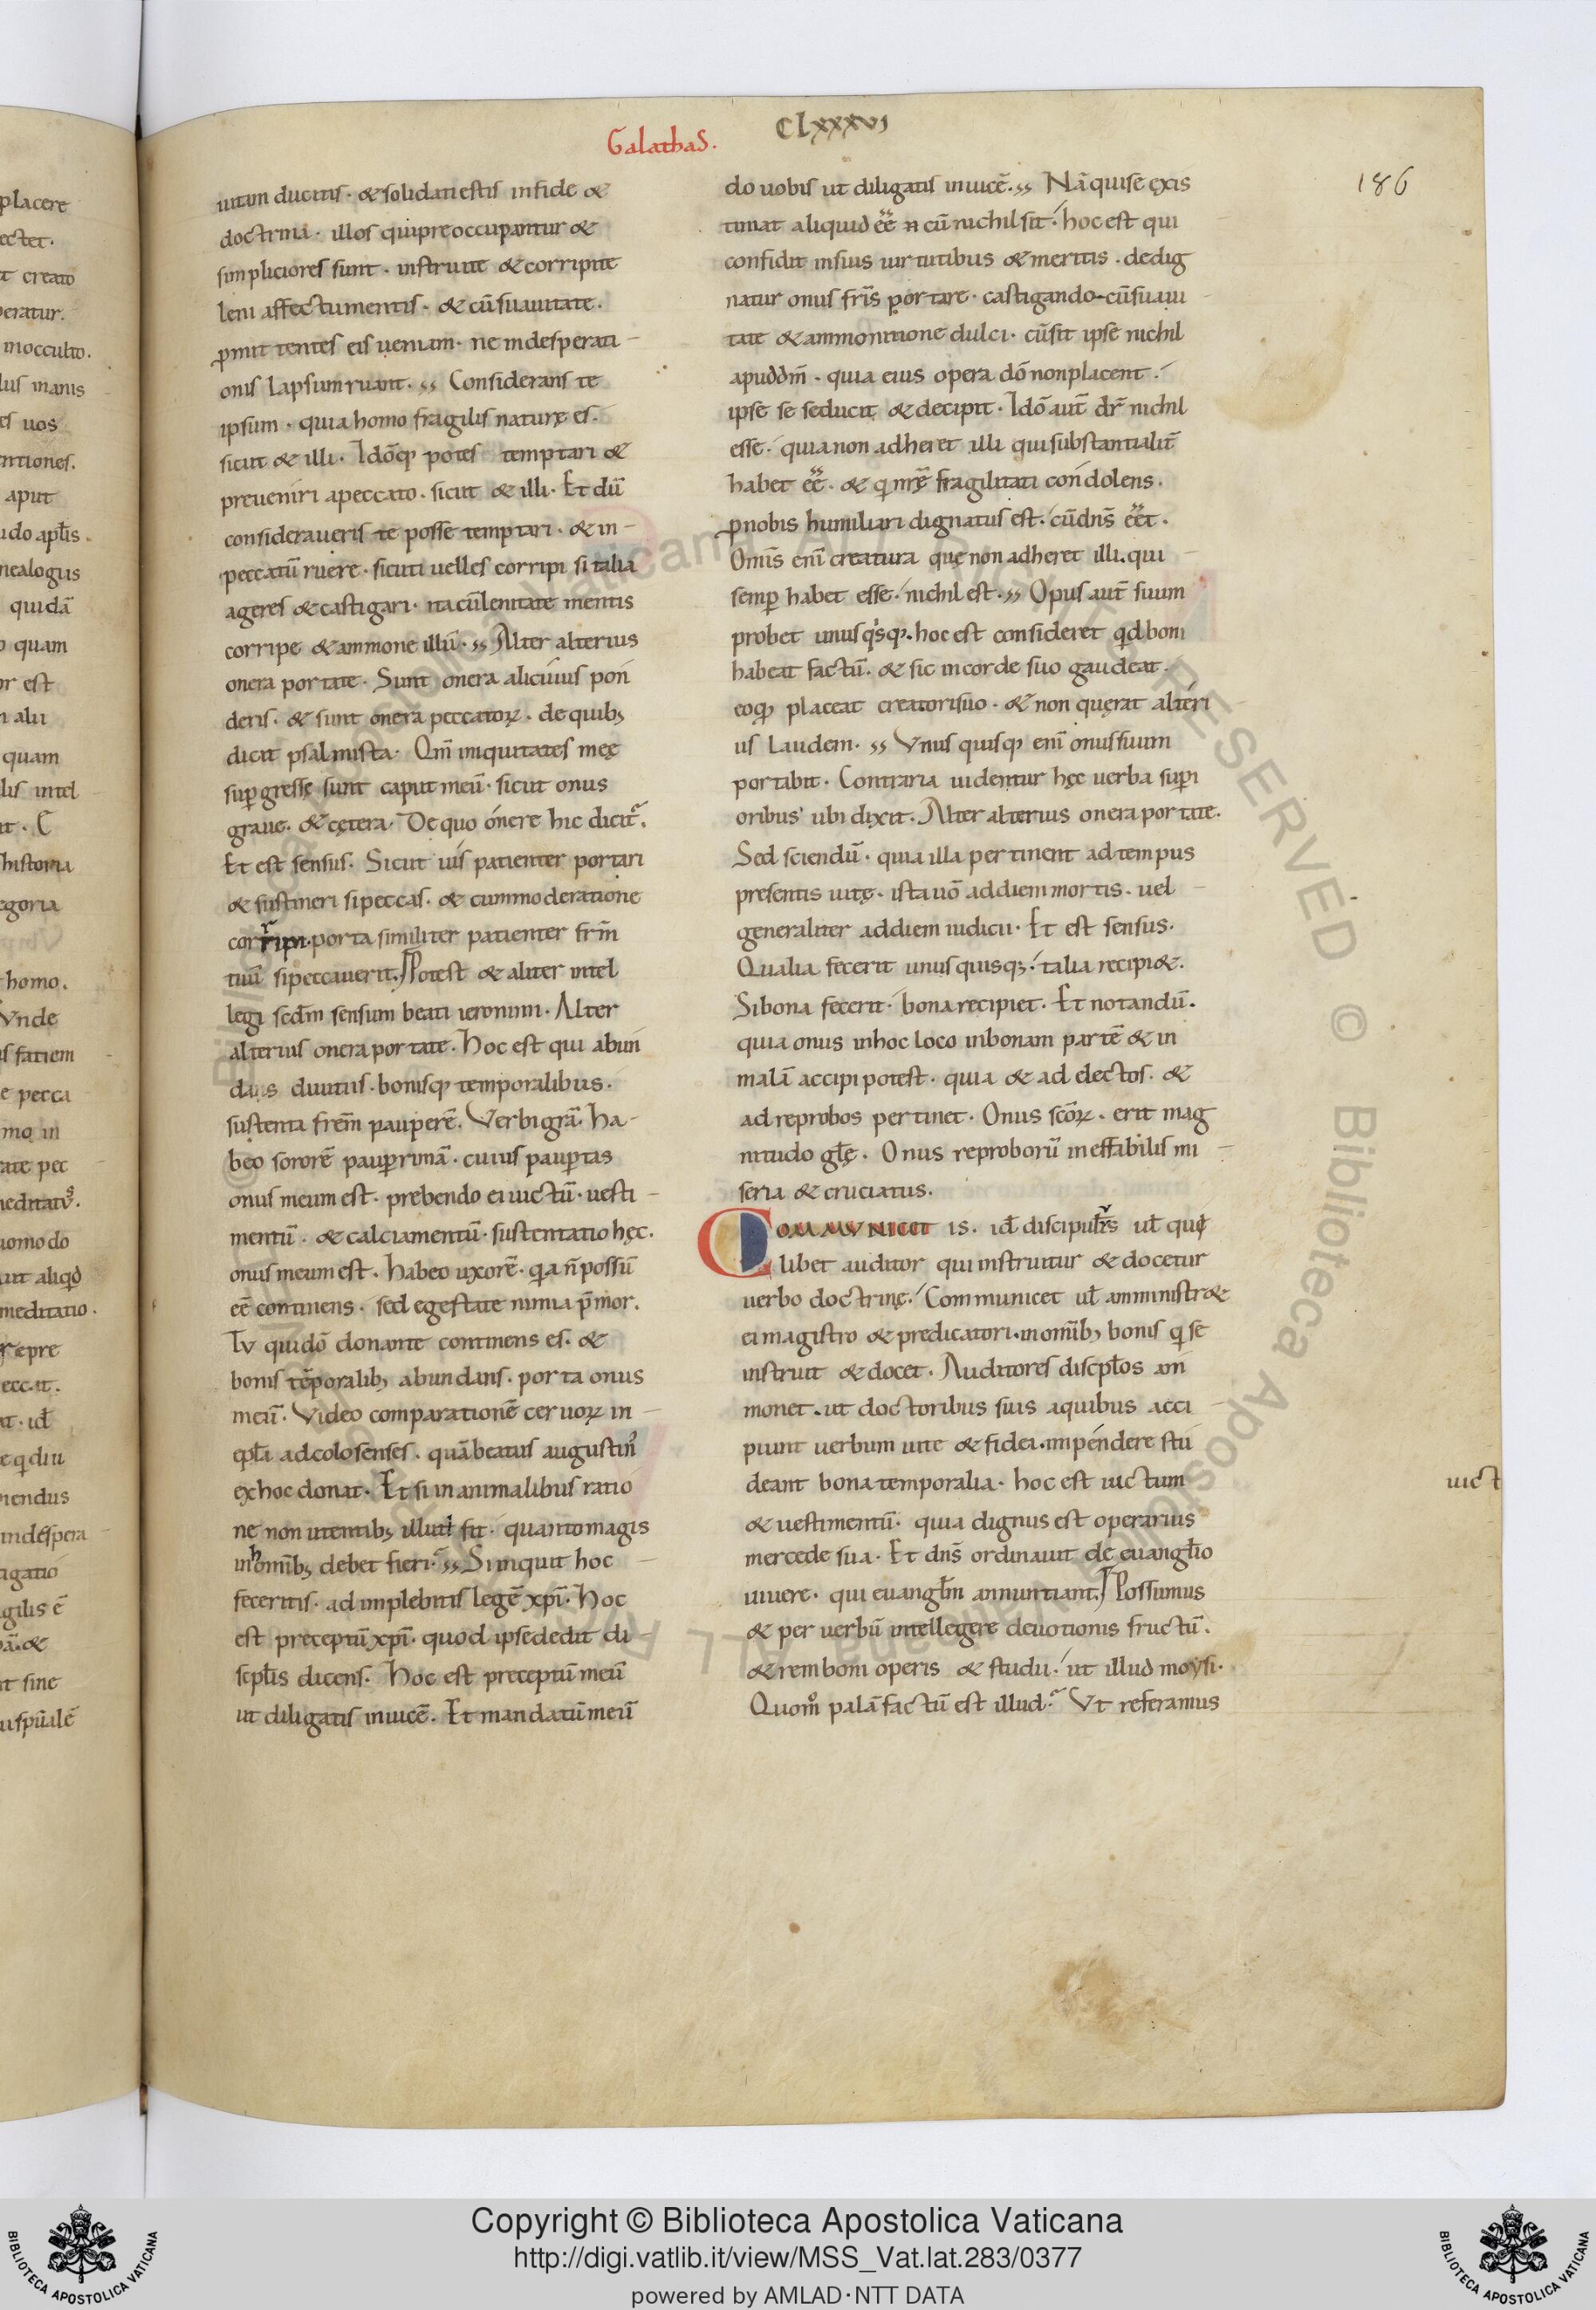 Galathas.
CLXXXVI
186
uitam ducitis· & solidati estis in fide &
doctrina· illos qui preoccupantur &
simpliciores sunt· instruite & corripite
leni affectu mentis· & cū suauitate·
ꝓmittentes eis ueniam· ne in desperati-
onis lapsum ruant· Considerans te
ipsum· quia homo fragilis naturę es·
sicut & illi· Idōq; potes temptari &
preueniri a peccato· sicut & illi· Et dū
consideraueris te posse temptari· & in-
peccatū ruere· sicuti uelles corripi si talia
ageres & castigari· ita cū lenitate mentis
corripe & ammone illū· Alter alterius
onera portate· Sunt onera alicuius pon
deris· & sunt onera peccatoꝝ· de quib;
dicit psalmista· Qm̄ iniquitates meę
suꝑgressę sunt caput meū· sicut onus
graue· & cętera· De quo onere hic dicit᷑·
Et est sensus· Sicut uis patienter portari
& sustineri si peccas· & cum moderatione
corripi· porta similiter patienter frm̄
tuū si peccauerit· Potest & aliter intel
legi scdm̄ sensum beati ieronimi· Alter
alterius onera portate· Hoc est qui abun
dans diuitiis· bonisq; temporalibus·
sustenta frem̄ pauperē· Verbi grā· Ha-
beo sororē pauꝑrimā· cuius pauꝑtas
onus meum est· prebendo ei uictū· uesti-
mentū· & calciamentū· sustentatio hęc·
onus meum est· habeo uxorē· qa n̄ possū
eē continens· sed egestate nimia p̄mor·
Tu qui dō donante continens es· &
bonis tēporalib; abundans· porta onus
meū· Video comparationē ceruoꝝ in-
epła ad colosenses· quā beatus augustin᾽
ex hoc donat· Et si in animalibus ratio
ne non utentib; illud fit· quanto magis
in homīb; debet fieri· Si inquit hoc
feceritis· adimplebitis legē xpī· Hoc
est preceptū xpī· quod ipse dedit di-
scpłis dicens· Hoc est preceptū meū
ut diligatis inuicē· Et mandatū meū
do uobis ut diligatis inuicē· Nā qui se exis
timat aliquid eē cū nichil sit· hoc est qui
confidit in suis uirtutibus & meritis· dedig
natur onus frīs portare· castigando cū suaui-
tate & ammonitione dulci· cū sit ipse nichil
apud dm̄· quia eius opera dō non placent·
ipse se seducit & decipit· Idō aut̄ dr̄ nichil
esse· quia non adheret illi qui substantialit̄
habet eē· & qi nrę̄ fragilitati condolens·
ꝓ nobis humiliari dignatus est· cū dns̄ eēt·
Omīs enī creatura quę non adheret illi· qui
semꝑ habet esse· nichil est· Opus aut̄ suum
probet unusqisq;· hoc est consideret qd boni
habeat factū· & sic in corde suo gaudeat·
eoq; placeat creatori suo· & non querat alteri-
us laudem· Vnus quisq; enī onus suum
portabit· Contraria uidentur hęc uerba suꝑi
oribus· ubi dixit· Alter alterius onera portate·
Sed sciendū· quia illa pertinent ad tempus
presentis uitę· ista uō ad diem mortis· uel-
generaliter ad diem iudicii· Et est sensus·
Qualia fecerit unus quisq;· talia recipi&·
Si bona fecerit· bona recipiet· Et notandū·
quia onus in hoc loco in bonam partē & in
malā accipi potest· quia & ad electos· &
ad reprobos pertinet· Onus scōꝝ· erit mag
nitudo glę̄· Onus reproborū ineffabilis mi-
seria & cruciatus·
COMMVNICET IS· id discipulus ul quę
libet auditor qui instruitur & docetur
uerbo doctrinę· Communicet ul amministr&
ei magistro & predicatori· in omīb; bonis qi se
instruit & docet· Auditores discpłos am
monet· ut doctoribus suis a quibus acci-
piunt uerbum uite & fidei· impendere stu
deant bona temporalia· hoc est uictum
& uestimentū· quia dignus est operarius
mercede sua· Et dns̄ ordinauit de euangło
uiuere· qui euangłm annuntiant· Possumus
& per uerbū intellegere deuotionis fructū·
& rem boni operis & studii· ut illud moysi·
Quom̊ palā factū est illud· Vt referamus
uict
Copyright © Biblioteca Apostolica Vaticana
http://digi.vatlib.it/view/MSS_Vat.lat.283/0377
powered by AMLAD·NTT DATA
BIBLIOTECA APOSTOLICA VATICANA
BIBLIOTECA APOSTOLICA VATICANA